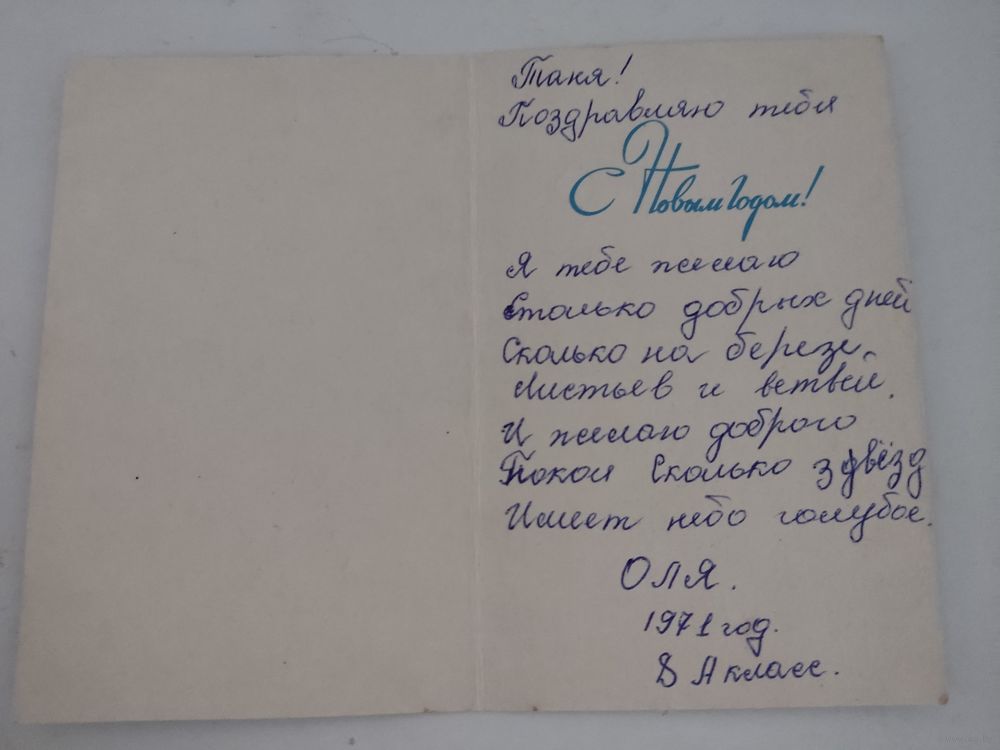 Таня!
Поздравляю тебя
С Новым годом!
Я тебе желаю
Столько добрых дней
Сколько на березе
Листьев и ветвей.
И желаю доброго
Покоя Сколько звёзд
Имеет небо голубое.
ОЛЯ.
1971 год.
8 А класс.